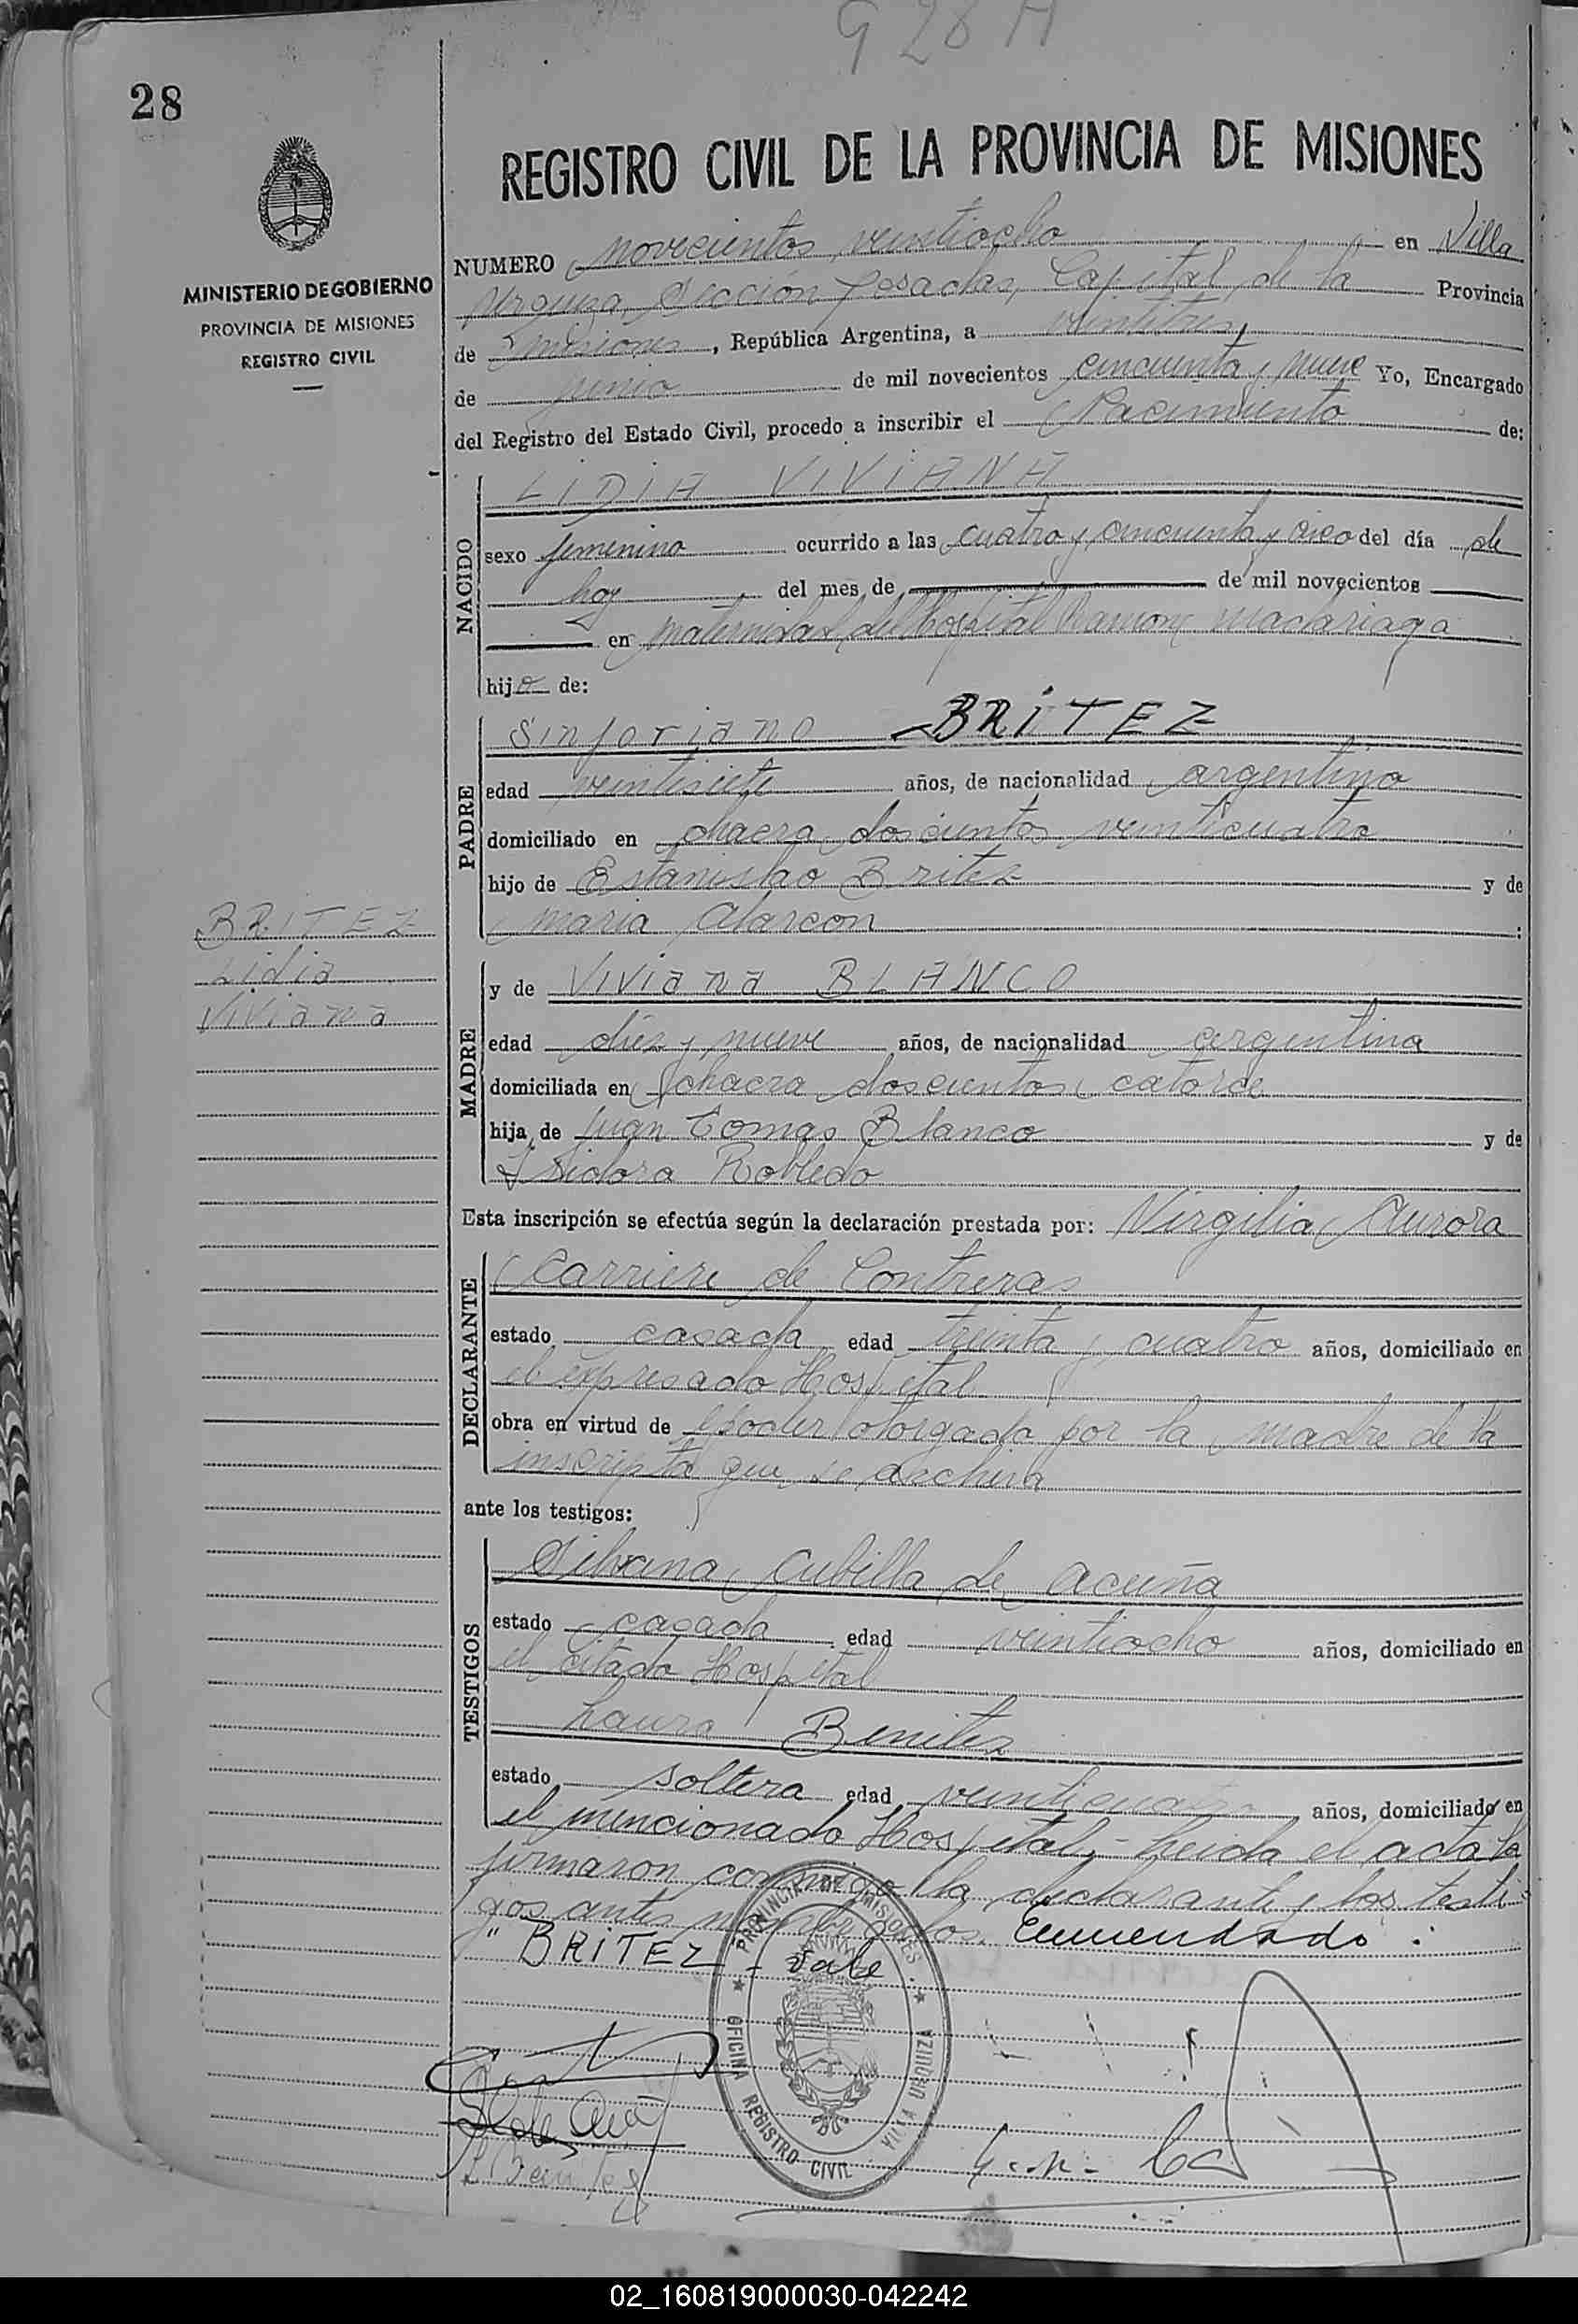 928 A
28
REGISTRO CIVIL DE LA PROVINCIA DE MISIONES
MINISTERIO DE GOBIERNO
PROVINCIA DE MISIONES
REGISTRO CIVIL
NUMERO novecientos veintiocho en Villa
Urquiza, Sección Posadas, Capital de la Provincia
de Misiones, República Argentina, a veintitres
de junio de mil novecientos cincuenta y nueve Yo, Encargado
del Registro del Estado Civil, procedo a inscribir el Nacimiento de:
NACIDO
LIDIA VIVIANA
sexo femenino ocurrido a las cuatro y cincuenta y cico del día de
hoy del mes de de mil novecientos
en maternidad del hospital Ramon Madariaga
hija de:
PADRE
Sinforiano BRITEZ
edad veintisiete años, de nacionalidad argentino
domiciliado en chacra doscientos veinticuatro
hijo de Estanislao Britez y de
Maria Alarcon :
BRITEZ
Lidia
Viviana
MADRE
y de Viviana BLANCO
edad diez y nueve años, de nacionalidad argentina
domiciliada en chacra doscientos catorce
hija de Juan Tomas Blanco y de
Isidora Robledo
Esta inscripción se efectúa según la declaración prestada por: Virgilia Aurora
DECLARANTE
Carriere de Contreras
estado casada edad treinta y cuatro años, domiciliado en
el expresado Hospital
obra en virtud de poder otorgado por la madre de la
inscripta que se archiva
ante los testigos:
TESTIGOS
Silvana Cubilla de Acuña
estado casada edad veintiocho años, domiciliado en
el citado Hospital
Laura Benitez
estado soltera edad veinticuatro años, domiciliado en
el mencionado Hospital, - Leida el acta la
firmaron conmigo la declarante y los testi-
gos antes nombrados. Enmendado :
"BRITEZ - Vale
PROVINCIA DE MISIONES
OFICINA REGISTRO CIVIL VILLA URQUIZA
L Benitez
02_160819000030-042242